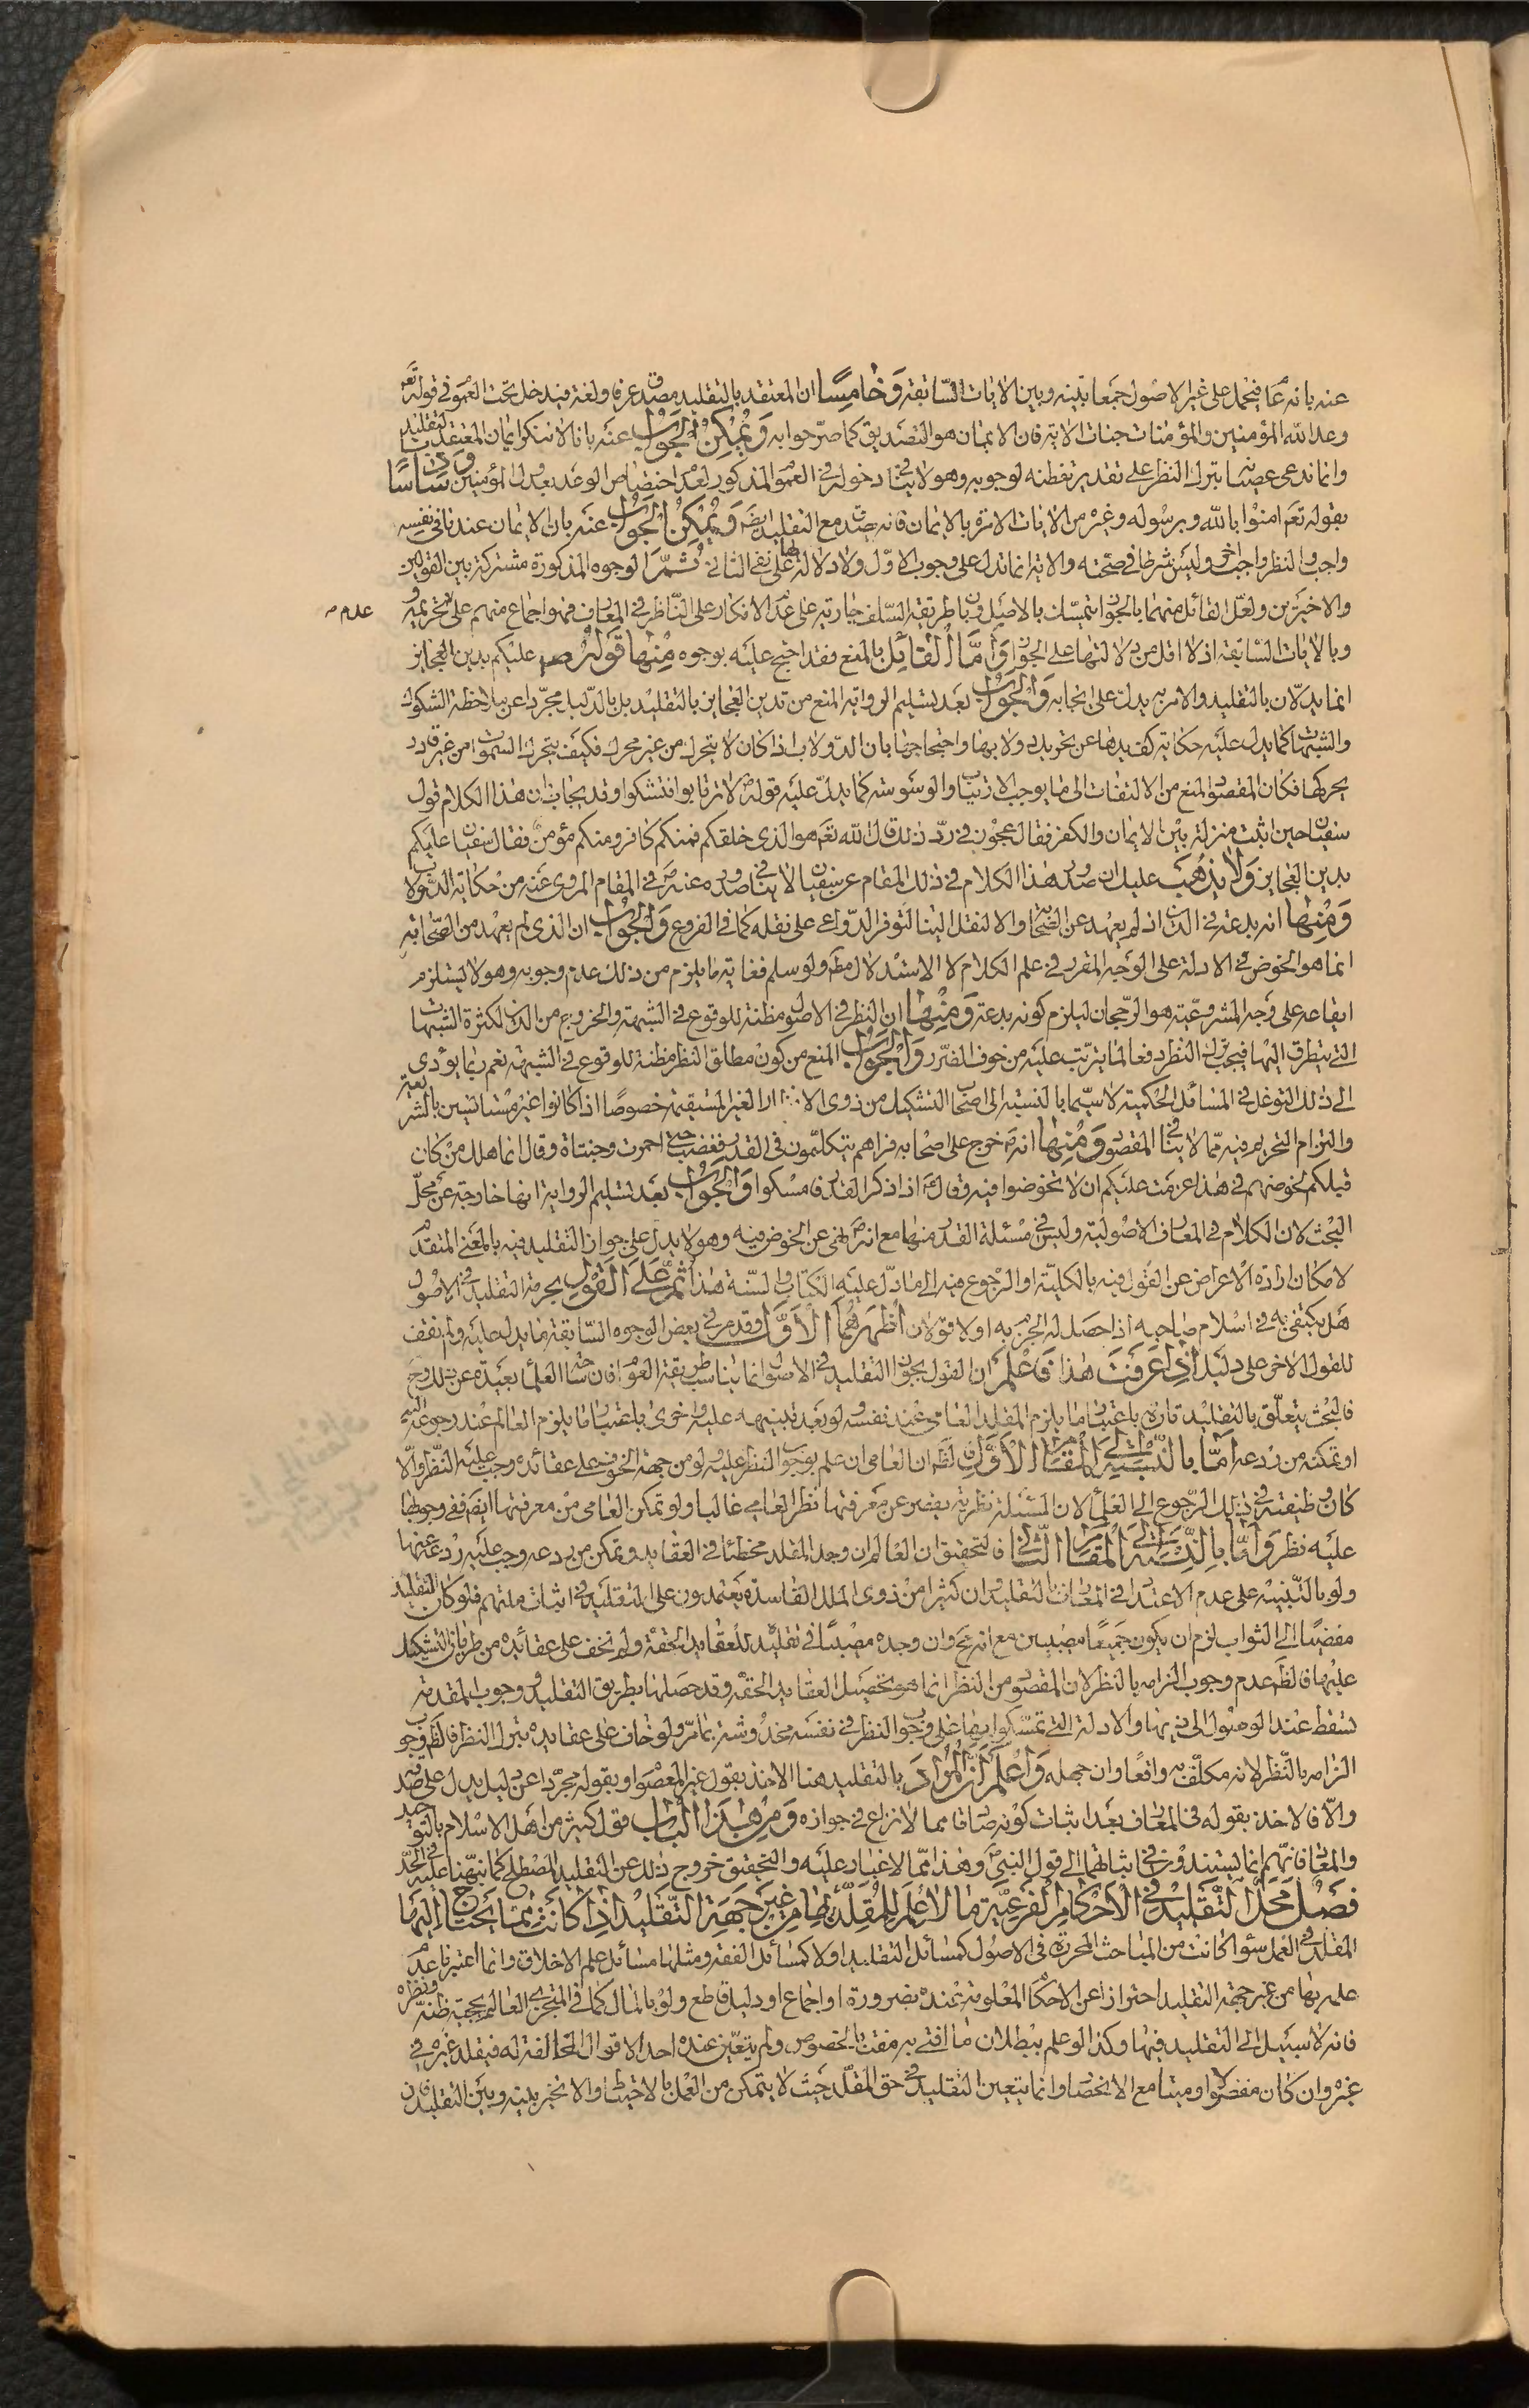 عنه بانه عام فيحمل على غير الاصول جمعا بينه وبين الايات السّابقة وَخامِسًا ان المعتقد بالتقليد مصدق عرفا ولغة فيدخل تحت العموم في قوله تعَم
وعد الله المؤمنين والمؤمنات جنات الاية فان الايمان هو التصديق كما صرّحوا به وَيُمْكِنُ الجَوابُ عنه بانا لا ننكر ايمان المعتقد بالتقليد
وانما ندعى عصيانه بترك النظر على تقدير تفطنه لوجوبه وهو لا ينافي دخوله في العموم المذكور لعدم اختصاص الوعد بعدول المؤمنين وَسادِسًا
بقوله تعَم امنوا بالله وبرسوله وغيره من الايات الامرة بالايمان فانه يصدق مع التقليد ايضَا وَيُمْكِنُ الجَوابُ عنه بان الايمان عندنا في نفسه
واجب والنظر واجب اخر وليس شرطا في صحّته والاية انما تدل على وجوب الاوّل ولا دلالة لها على نفى الثانى ثُمَّ الوجوه المذكورة مشتركة بين القولين
والاخيرين ولعلّ القائل منهما بالجواز يتمسّك بالاصل وبان طريقة السّلف جارية على عدم الانكار على النّاظر في المعارف فهو اجماع منهم على عدم تحريمه و
عدم
وبالايات السّابقة اذ لا اقل من دلالتها على الجواز وَأَمَّا القائِل بالمنع فقد احتج عليه بوجوه مِنْها قَولُه ص عليكم بدين العجايز
انما يدلان بالتقليد والامر به يدل على ايجابه وَالجَوابُ بعَد تسليم الرواية المنع من تدين العجايز بالتقليد بل بالدّليل مجرّدا عن ملاحظة الشكوك
والشبهات كما يدل عليه حكاية كف يدها عن تحريك دولابها واحتجاجها بان الدّولاب اذا كان لا يتحرك من غير محرك فكيف يتحرك السّموات من غير قادر
يحركها فكان المقصود المنع من الالتفات الى ما يوجب الارتياب والوسوسة كما يدلّ عليه قوله ع لا ترتابوا فتشكوا وقد يجاب بان هذا الكلام قول
سفيان حين اثبت منزلة بين الايمان والكفر فقال عجوز في ردّ ذلك قال الله تعَم هو الذى خلقكم فمنكم كافر ومنكم مؤمن فقال سفيان عليكم
بدين العجايز وَلا يَذهَبُ عليك ان صدور هذا الكلام في ذلك المقام عن سفيان لا ينافي صدوره عنه ص في المقام المروى عنه من حكاية الدّولاب
وَمِنْها انه بدعة في الدّين اذ لم يعهد عن الصّحابة والا لنقل الينا لتوفر الدّواعى على نقله كما في الفروع وَالجَوابُ ان الذى لم يعهد من الصّحابة
انما هو الخوض في الادلة على الوجه المقرر في علم الكلام لا الاستدلال مطَ ولو سلم فغاية ما يلزم من ذلك عدم وجوبه وهو لا يستلزم
ايقاعه على وجه المشروعيّة هو الرّجحان ليلزم كونه بدعة وَمِنْها ان النظر في الاصول مظنة للوقوع في الشبهة والخروج من الدّين لكثرة الشبهات
التى يتطرق اليها فيجب ترك النظر دفعا لما يترتّب عليه من خوف الضّرر وَالجَوابُ المنع من كون مطلق النظر مظنة للوقوع في الشبهة نعم ربما يؤدى
الى ذلك التوغل في المسائل الحكمية لا سيّما بالنسبة الى اصحاب التشكيك من ذوى الاراء الغير المستقيمة خصوصًا اذا كانوا غير مستانسين بالشريعة
والتزام التحريم فيه ممّا لا ينافي المقصود وَمِنْها انه ص خرج على اصحابه فراهم يتكلمون في القدر فغضب حتى احمرت وجنتاه وقال انما هلك من كان
قبلكم لخوضهم في هذا عزمت عليكم ان لا تخوضوا فيه وقال ص اذا ذكر القدر فامسكوا وَالجَوابُ بعد تسليم الرواية انها خارجة عن محلّ
البحث لان الكلام في المعارف الاصولية وليس مسئلة القدر منها مع انه ص نهى عن الخوض فيه وهو لا يدل على جواز التقليد فيه بالمعنى المتقدّم
لامكان ارادة الاعراض عن القول فيه بالكليّة او الرّجوع فيه الى ما دلّ عليه الكتاب والسّنة هذا ثُمَّ عَلَى القَولِ بحرمة التقليد في الاصول
هَل يكتفى به في اسلام صاحبه اذا حصل له الجزم به او لا قولان اَظْهَرُهُما الْاَوَّل وقد مر في بعض الوجوه السّابقة ما يدل عليه ولم نقف
للقول الاخر على دليل اِذا عَرَفتَ هذا فَاعْلَم ان القول بجواز التقليد في الاصول انما يناسب طريقة العوام فان شان العلماء بعيدة عن ذلك وح
فالبحث يتعلّق بالتقليد تارة باعتبار ما يلزم المقلد العامى عند نفسه ولو بعد تنبيهه عليه واخرى باعتبار ما يلزم العالم عند رجوعه اليه
او تمكنه من ردعه اَمّا بِالنِّسْبَةِ اِلَى المَقامِ الْاَوَّلِ فالظّ ان العامى ان علم بوجوب النظر عليه ولو من جهة الخوف على عقائده وجب عليه النّظر والّا
كان وظيفته في ذلك الرّجوع الى العلماء لان المسئلة نظرية يقصر عن معرفتها نظر العامى غالبا ولو تمكن العامى من معرفتها ايضَا ففى وجوبها
عليه نظر وَاَمّا بِالنِّسْبَةِ اِلَى المَقامِ الثّانى فالتحقيق ان العالم ان وجد المقلد مخطئا في العقايد وتمكن من ردعه وجب عليه ردعه عنها
ولو بالتّنبيه على عدم الاعتداد في المعارف بالتقليد وان كثيرا من ذوى الملل الفاسدة يعتمدون على التقليد في اثبات ملتهم فلو كان التقليد
مفضيًا الى الثواب لزم ان يكون جميعًا مصيبين مع انه مح وان وجده مصيبًا في تقليده للعقايد الحقّة ولم نخف على عقائده من طريان التشكيك
عليها فالظّ عدم وجوب الزامه بالنظر لان المقصود من النظر انما هو تحصيل العقايد الحقة وقد حصلها بطريق التقليد ووجوب المقدمة
يسقط عند الوصول الى ذيها والادلة التى تمسّكوا بها على وجوب النظر في نفسه مخدوشة بما مرّ ولو خاف على عقايده بترك النظر فالظ وجوب
الزامه بالنّظر لانه مكلّف به واقعًا وان جهله وَاعْلَمْ اَنَّ المُرادَ بالتقليد هنا الاخذ بقول غير المعصوم او بقوله مجرّدا عن دليل يدل على صدقه
والّا فالاخذ بقوله في المعارف بعد اثبات كونه صادقا مما لا نزاع في جوازه وَمِن هذَا البابِ قول كثير من اهل الاسلام بالتوحيد
والمعاد فانّهم انما يستندون في اثباتهما الى قول النبىّ ص وهذا ممّا لا غبار عليه والتحقيق خروج ذلك عن التقليد المصطلح كما نبّهنا عليه في الحدّ
فصل مَحَلُّ التَّقْليدِ فِى الْاَحْكامِ الْفَرْعِيَّةِ ما لا عِلْمَ لِلْمُقَلِّدِ بِها مِنْ غَيْرِ جِهَةِ التَّقْليدِ اِذا كانَتْ مِمّا يَحْتاجُ اِلَيْهَا
المقلد في العمل سواء كانت من المباحث المحررة في الاصول كمسائل التقليد او لا كمسائل الفقه ومثلها مسائل علم الاخلاق وانما اعتبرنا عدم
علمه بها من غير جهة التقليد احترازا عن الاحكام المعلومة عنده بضرورة او اجماع او دليل قاطع ولو بالمال كما في المتجزى العالم بحجية ظنّه ونظره
فانه لا سبيل الى التقليد فيها وكذا لو علم ببطلان ما افتى به مفت بالخصوص ولم يتعيّن عنده احد الاقوال المخالفة له فيقلد غيره في
غيره وان كان مفضولا او ميتا مع الانحصار وانما يتعين التقليد في حق المقلّد حيث لا يتمكن من العمل بالاحتياط والا تخير بينه وبين التقليد فان